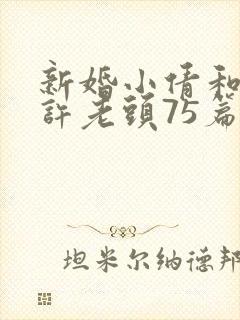 新婚小倩和
許老頭75篇
坦米尔纳德邦